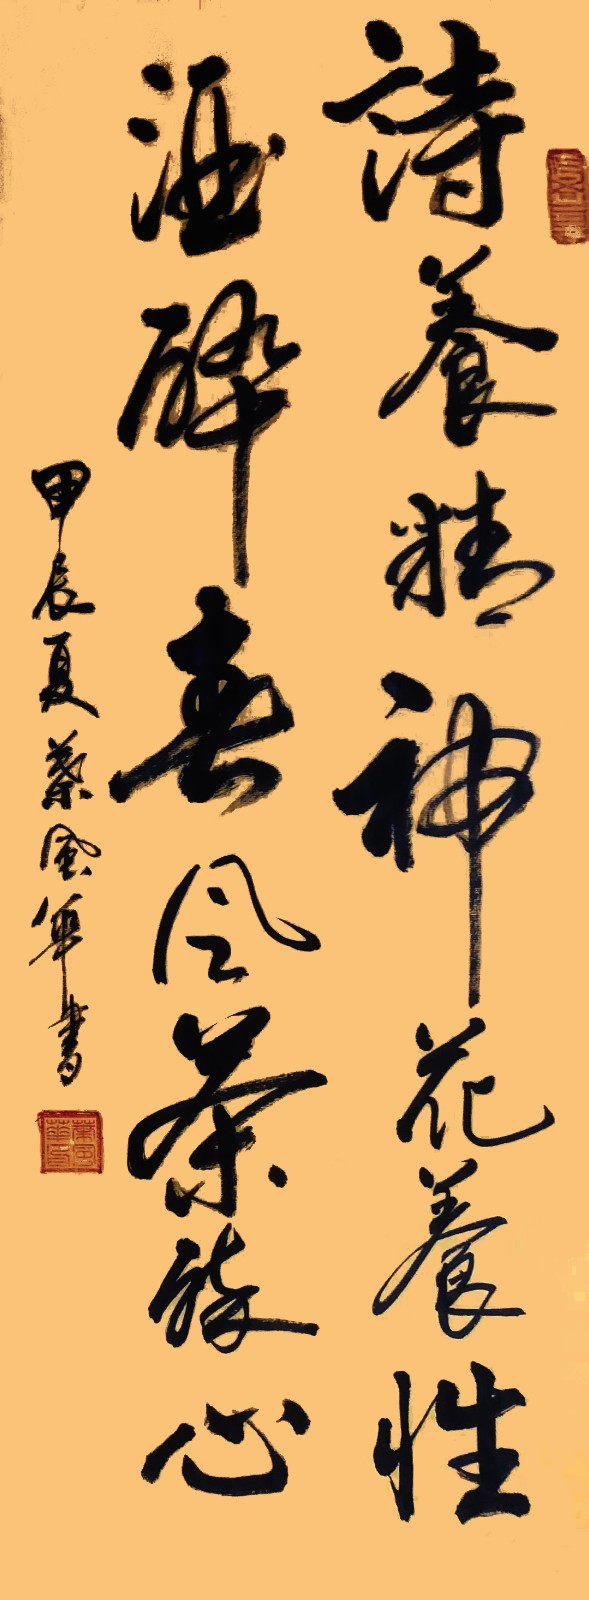 詩養精神花養性
酒醉春風茶醉心
甲辰夏葉風華書